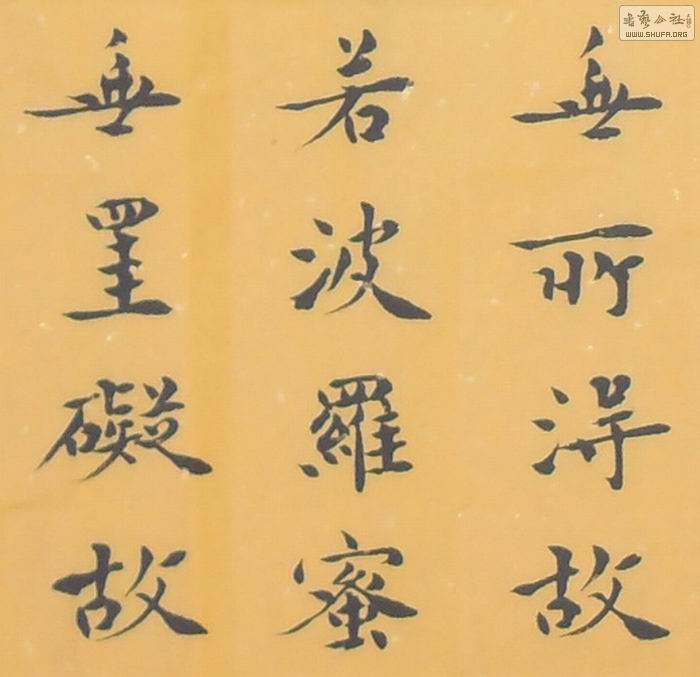 無所得故
若波羅蜜
無罣礙故
書藝公社
WWW.SHUFA.ORG